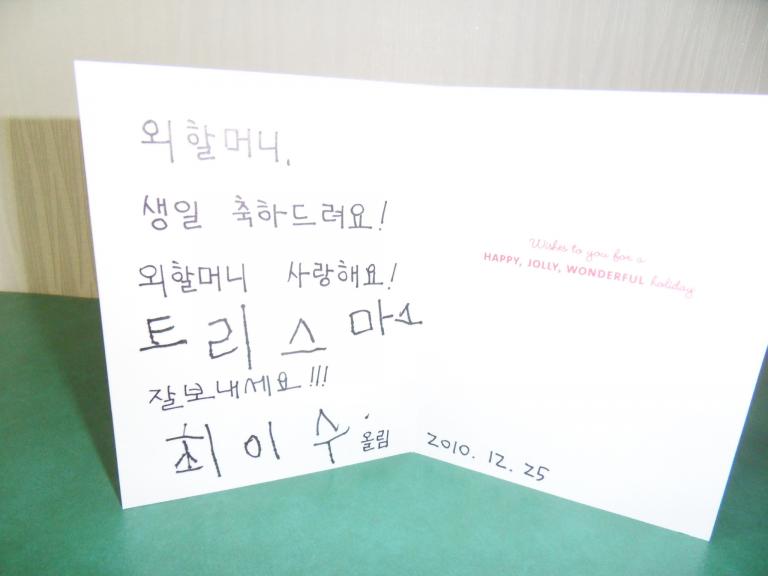 외할머니.
생일 축하드려요!
외할머니 사랑해요!
토리스마스
잘보내세요!!!
최이수 올림
Wishes to you for a
HAPPY, JOLLY, WONDERFUL holiday
2010. 12. 25